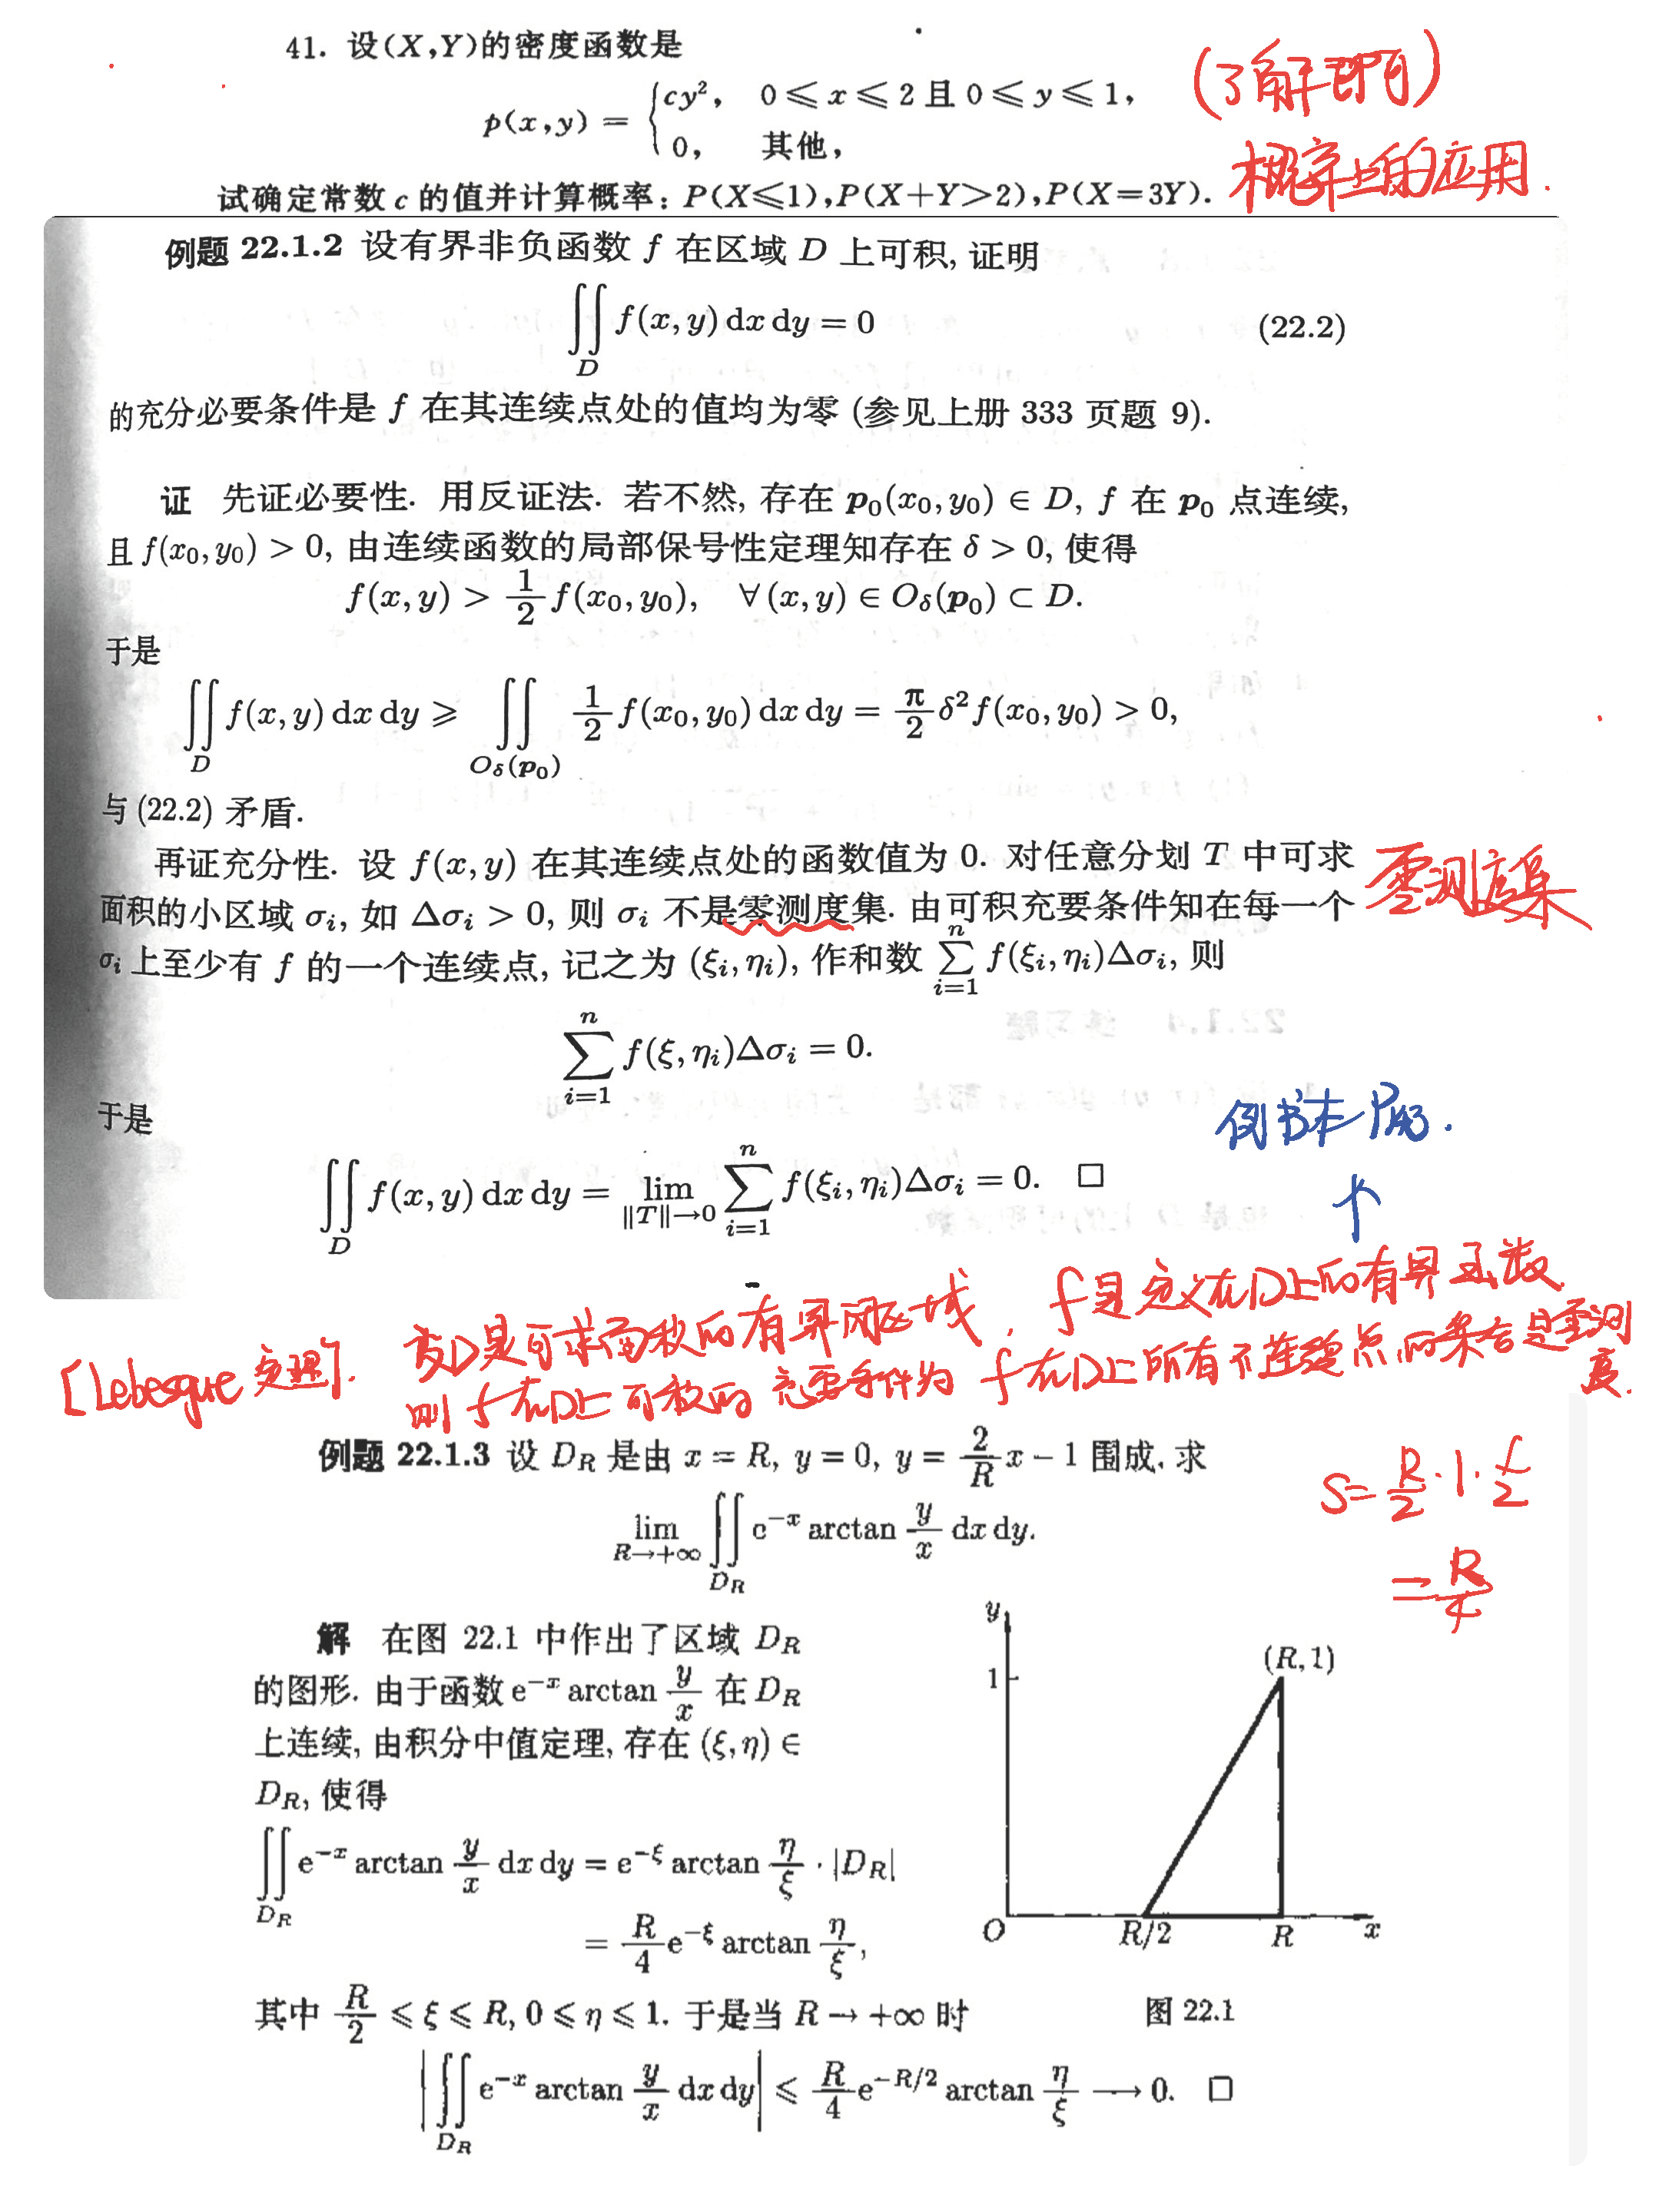 41. 设(X,Y)的密度函数是
p(x,y) = { cy², 0 ⩽ x ⩽ 2 且 0 ⩽ y ⩽ 1,
0, 其他,
(了解即可)
试确定常数 c 的值并计算概率: P(X⩽1),P(X+Y>2),P(X=3Y).
概率上的应用.
例题 22.1.2 设有界非负函数 f 在区域 D 上可积, 证明
∬_D f(x, y) dx dy = 0 (22.2)
的充分必要条件是 f 在其连续点处的值均为零 (参见上册 333 页题 9).
证 先证必要性. 用反证法. 若不然, 存在 p₀(x₀, y₀) ∈ D, f 在 p₀ 点连续,
且 f(x₀, y₀) > 0, 由连续函数的局部保号性定理知存在 δ > 0, 使得
f(x, y) > 1/2 f(x₀, y₀), ∀ (x, y) ∈ O_δ(p₀) ⊂ D.
于是
∬_D f(x, y) dx dy ⩾ ∬_{O_δ(p₀)} 1/2 f(x₀, y₀) dx dy = π/2 δ² f(x₀, y₀) > 0,
与 (22.2) 矛盾.
再证充分性. 设 f(x, y) 在其连续点处的函数值为 0. 对任意分划 T 中可求
面积的小区域 σᵢ, 如 Δσᵢ > 0, 则 σᵢ 不是零测度集. 由可积充要条件知在每一个
零测度集
σᵢ 上至少有 f 的一个连续点, 记之为 (ξᵢ, ηᵢ), 作和数 ∑_{i=1}^{n} f(ξᵢ, ηᵢ)Δσᵢ, 则
∑_{i=1}^{n} f(ξ, ηᵢ)Δσᵢ = 0.
于是
∬_D f(x, y) dx dy = lim_{‖T‖→0} ∑_{i=1}^{n} f(ξᵢ, ηᵢ)Δσᵢ = 0. □
书本
↑
[Lebesgue 定理]. 设D是可求面积的有界闭区域, f是定义在D上的有界函数.
则 f在D上可积的 充要条件为 f在D上所有不连续点的集合是零测度.
例题 22.1.3 设 D_R 是由 x = R, y = 0, y = 2/R x − 1 围成, 求
lim_{R→+∞} ∬_{D_R} e^{−x} arctan y/x dx dy.
S= R/2 · 1 · 1/2
= R/4
解 在图 22.1 中作出了区域 D_R
的图形. 由于函数 e^{−x} arctan y/x 在 D_R
上连续, 由积分中值定理, 存在 (ξ, η) ∈
D_R, 使得
∬_{D_R} e^{−x} arctan y/x dx dy = e^{−ξ} arctan η/ξ · |D_R|
= R/4 e^{−ξ} arctan η/ξ,
y
1
(R, 1)
O R/2 R x
图 22.1
其中 R/2 ⩽ ξ ⩽ R, 0 ⩽ η ⩽ 1. 于是当 R → +∞ 时
|∬_{D_R} e^{−x} arctan y/x dx dy| ⩽ R/4 e^{−R/2} arctan η/ξ ⟶ 0. □